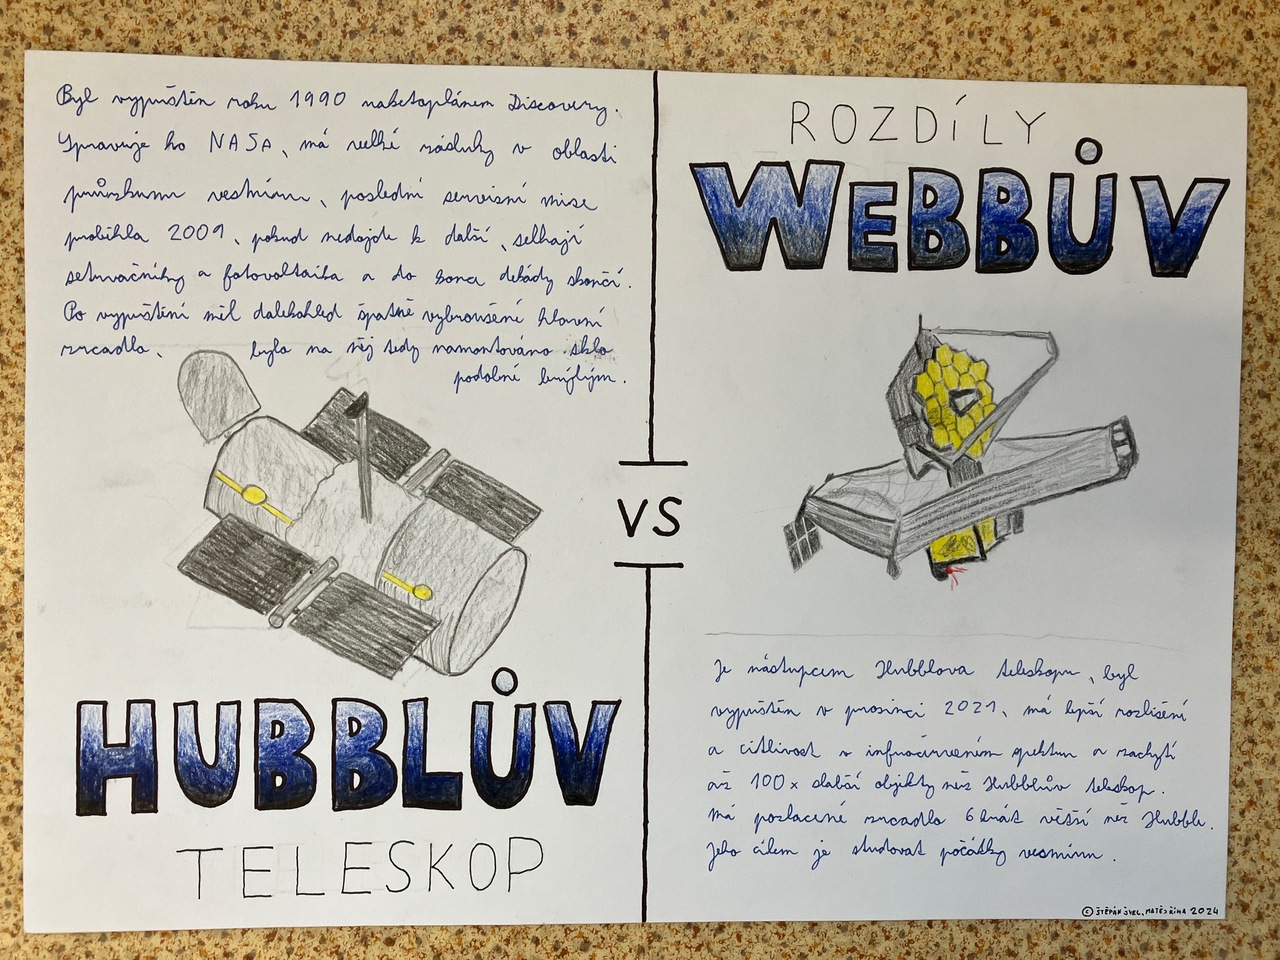 Byl vypuštěn roku 1990 raketoplánem Discovery.
Spravuje ho NASA, má velké zásluhy v oblasti
průzkumu vesmíru, poslední servisní mise
proběhla 2009, pokud nedojde k další, selhají
setrvačníky a fotovoltaika a do konce dekády skončí.
Po vypuštění měl dalekohled špatně vybroušené hlavní
zrcadlo, bylo na něj tedy namontováno sklo
podobné brýlým.
HUBBLŮV
TELESKOP
VS
ROZDÍLY
WEBBŮV
Je nástupcem Hubblova teleskopu, byl
vypuštěn v prosinci 2021, má lepší rozlišení
a citlivost v infračerveném spektru a zachytí
až 100x slabší objekty než Hubblův teleskop.
Má pozlacené zrcadlo 6krát větší než Hubble.
Jeho cílem je studovat počátky vesmíru.
© ŠTĚPÁN MATĚJ ŘÍHA 2024